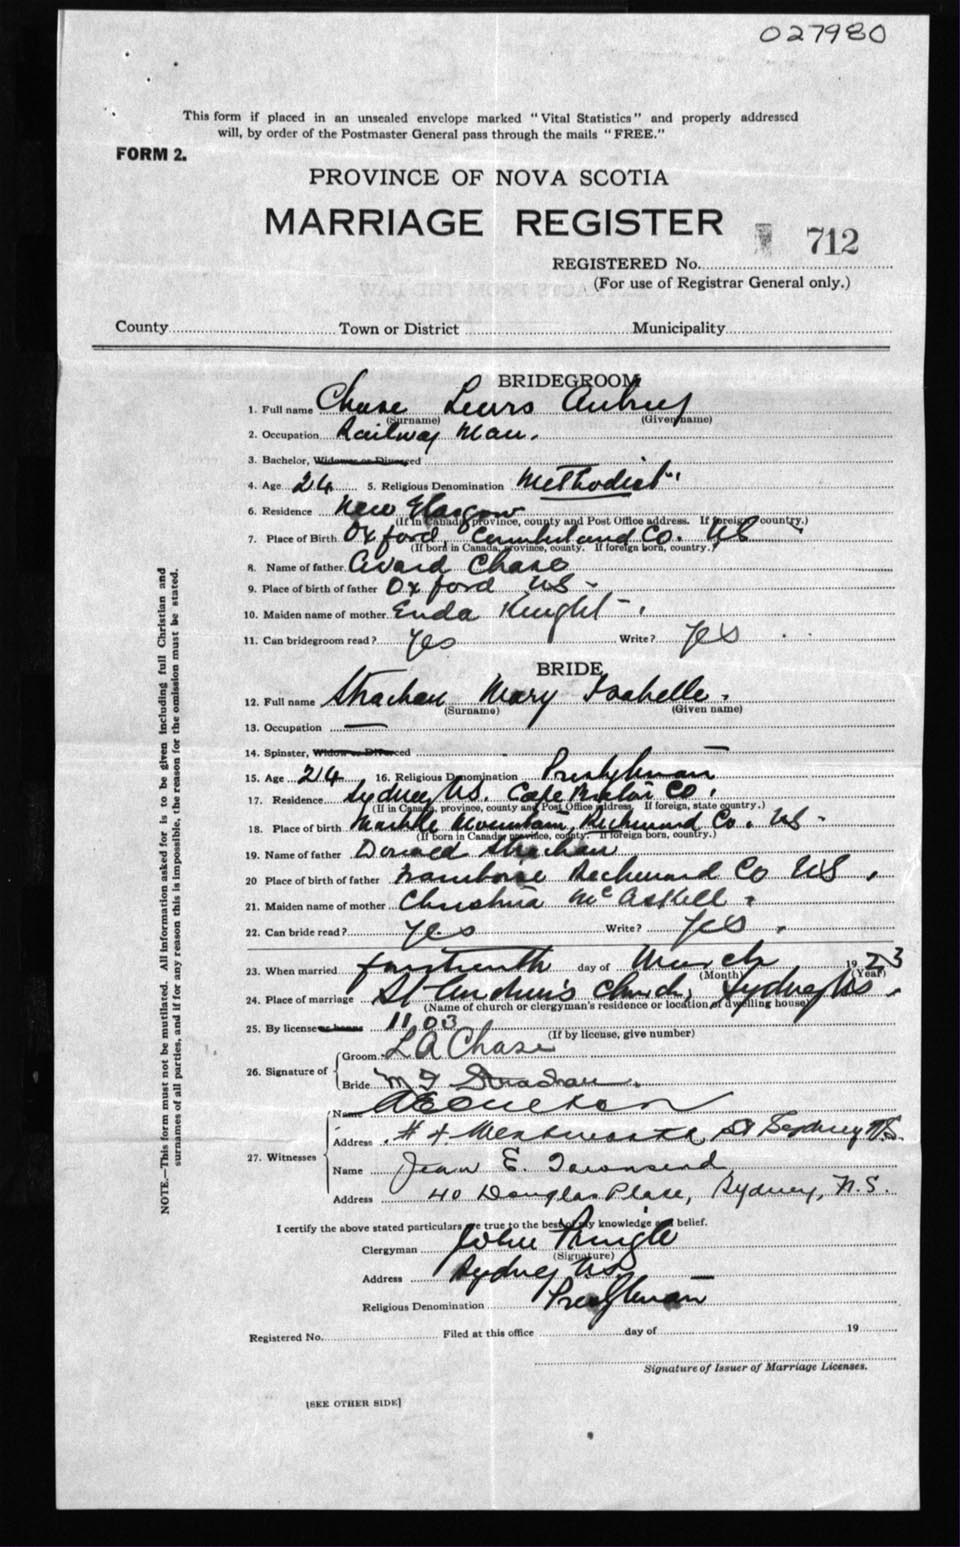 027980
This form if placed in an unsealed envelope marked "Vital Statistics" and properly addressed
will, by order of the Postmaster General pass through the mails "FREE."
FORM 2.
PROVINCE OF NOVA SCOTIA
MARRIAGE REGISTER
712
REGISTERED No.
(For use of Registrar General only.)
County Town or District Municipality
BRIDEGROOM
1. Full name Chase Lewis Aubrey
(Surname) (Given name)
2. Occupation Railway Man.
3. Bachelor, Widower or Divorced
4. Age 24 5. Religious Denomination Methodist
6. Residence New Glasgow
(If in Canada, province, county and Post Office address. If foreign, country.)
7. Place of Birth Oxford, Cumberland Co. NS
(If born in Canada, province, county. If foreign born, country.)
8. Name of father Avard Chase
9. Place of birth of father Oxford NS
10. Maiden name of mother Enda Knight
11. Can bridegroom read? Yes Write? Yes
BRIDE
12. Full name Strachan Mary Isabelle
(Surname) (Given name)
13. Occupation
14. Spinster, Widow or Divorced
15. Age 24 16. Religious Denomination Presbyterian
17. Residence Sydney NS. Cape Breton Co.
(If in Canada, province, county and Post Office address. If foreign, state country.)
18. Place of birth Marble Mountain, Richmond Co. NS
(If born in Canada province, county. If foreign born, country.)
19. Name of father Donald Strachan
20 Place of birth of father Framboise Richmond Co NS
21. Maiden name of mother Christina McAskell
22. Can bride read? Yes Write? Yes
23. When married fourteenth day of March 1923
(Month) (Year)
24. Place of marriage St Andrew's Church, Sydney NS
(Name of church or clergyman's residence or location of dwelling house)
25. By license or banns 1103
(If by license, give number)
26. Signature of
Groom L A Chase
Bride M I Strachan
27. Witnesses
Name
Address # 4 Wentworth St Sydney N.S.
Name Jean E. Townsend
Address 40 Douglas Place, Sydney, N.S.
I certify the above stated particulars are true to the best of my knowledge and belief.
Clergyman John Pringle
(Signature)
Address Sydney NS
Religious Denomination Presbyterian
Registered No. Filed at this office day of 19
Signature of Issuer of Marriage Licenses.
[SEE OTHER SIDE]
NOTE.—This form must not be mutilated. All information asked for is to be given including full Christian and
surnames of all parties, and if for any reason this is impossible, the reason for the omission must be stated.